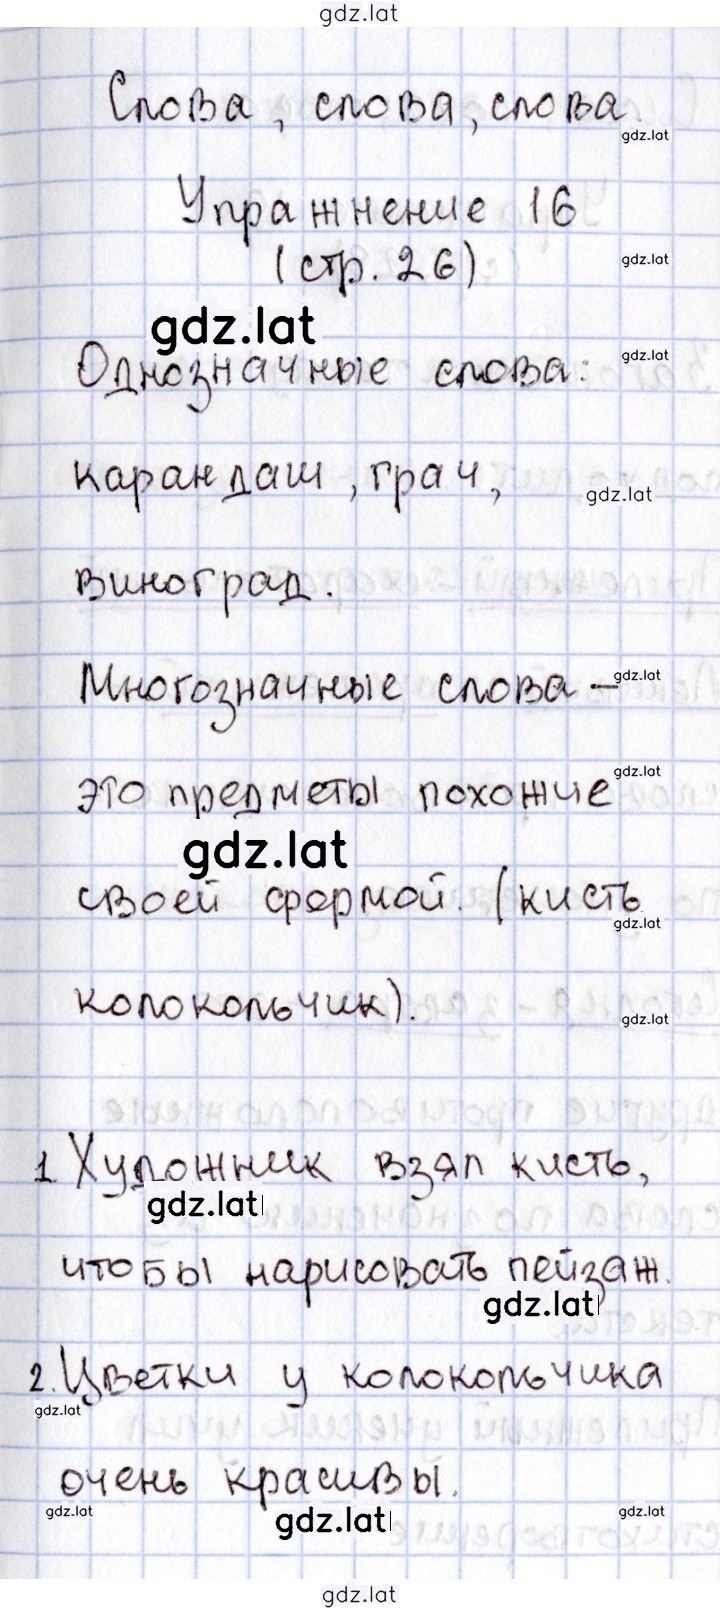 gdz.lat
Слова, слова, слова
gdz.lat
Упражнение 16
(стр. 26)
gdz.lat
gdz.lat
Однозначные слова:
gdz.lat
карандаш, грач,
gdz.lat
виноград.
Многозначные слова –
gdz.lat
это предметы похожие
gdz.lat
gdz.lat
своей формой. (кисть
gdz.lat
колокольчик).
gdz.lat
1. Художник взял кисть,
gdz.lat
чтобы нарисовать пейзаж.
gdz.lat
2. Цветки у колокольчика
gdz.lat
очень красивы.
gdz.lat
gdz.lat
gdz.lat
gdz.lat